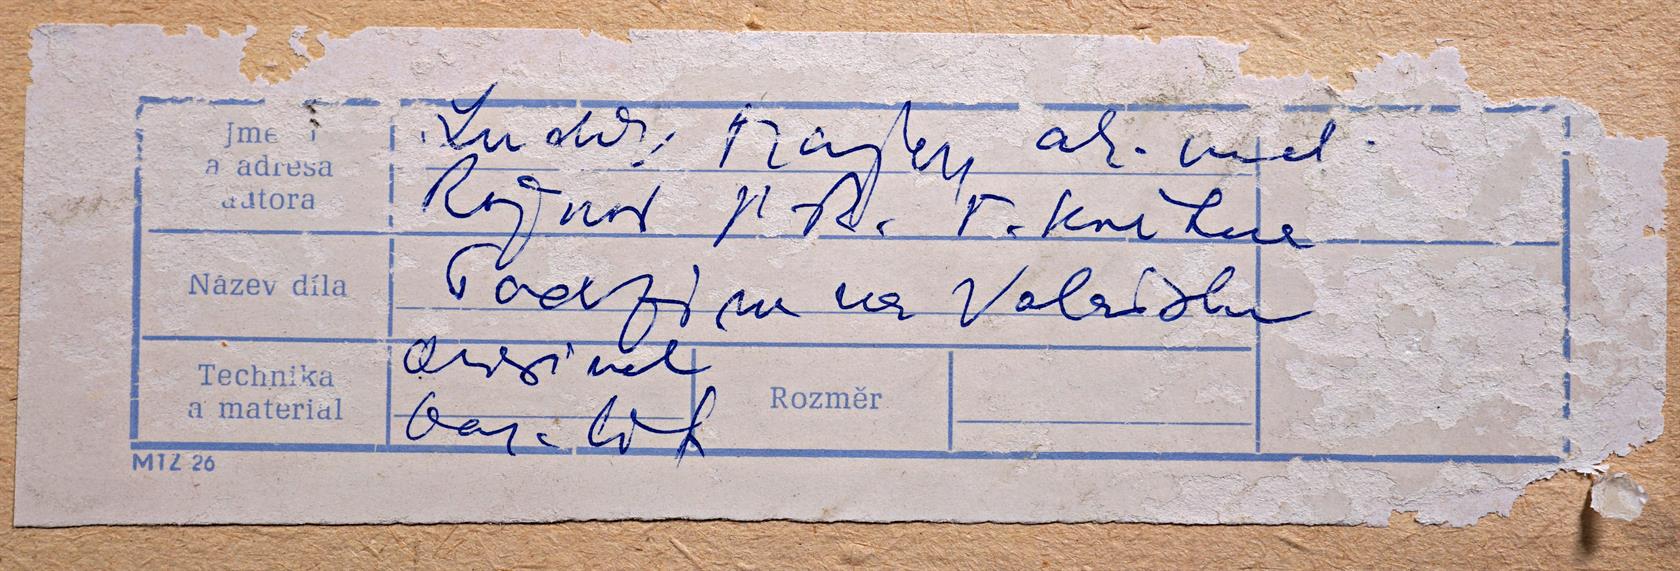 Jmé
a adresa
autora
Ludvík Klaylen ak. mal.
Rožnov p. R. 1. května
Název díla
Podzim na Valašsku
Technika
a materiál
original
bar. lit
Rozměr
MTZ 26